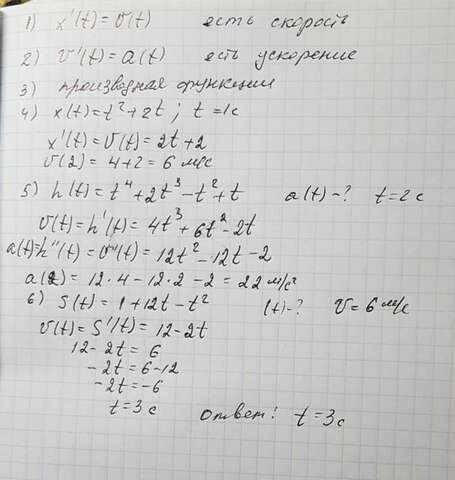 1) x'(t) = v(t) есть скорость
2) v'(t) = a(t) есть ускорение
3) производная функции
4) x(t) = t² + 2t ; t = 1c
x'(t) = v(t) = 2t + 2
v(2) = 4 + 2 = 6 м/с
5) h(t) = t⁴ + 2t³ - t² + t a(t) - ? t = 2 c
v(t) = h'(t) = 4t³ + 6t² - 2t
a(t) = h''(t) = v''(t) = 12t² - 12t - 2
a(2) = 12 · 4 - 12 · 2 - 2 = 22 м/с²
6) S(t) = 1 + 12t - t² (t) - ? V = 6 м/с
v(t) = S'(t) = 12 - 2t
12 - 2t = 6
- 2t = 6 - 12
- 2t = -6
t = 3 c ответ: t = 3 c